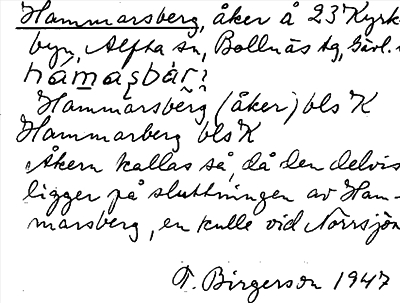 Hammarsberg, åker å 23 Kyrk-
byn, Alfta sn, Bollnäs tg, Gävl.
hamasbär
Hammarsberg (åker) bls K
Hammarberg bls K
Åkern kallas så, då den delvis
ligger på sluttningen av Ham-
marsberg, en kulle vid Norrsjön
T. Birgerson 1947